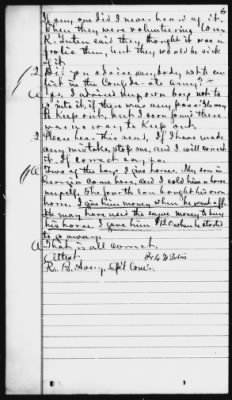 6
If any one did I never heard of it.
When they were volunteering
R. said they thought it was a
frolic then, but they would be sick
of it.
Q Did you advise anybody not to en-
list in the Confederate Army?
A Yes I advised my own boys not to
go into it, if there was any possible way
to keep out, but I soon found there
was no way to keep out.
Q Please hear this read, if I have made
any mistake, stop me, and I will correct
it. If correct say so.
A Two of the boys I give horses. My son in
Georgia came here, and I sold him a horse
myself. The fourth son bought his own
horse. I give him money when he went off.
He may have used the same money to buy
his horse. I gave him when he started
to go away.
A That is all correct.
Attest.
R. B. Spc'l Com'r.